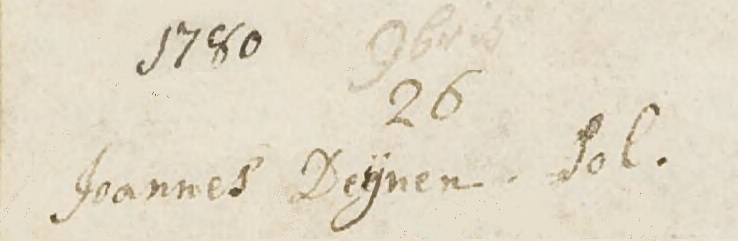 1780 9bris
26
Joannes Deijnen. Sol.